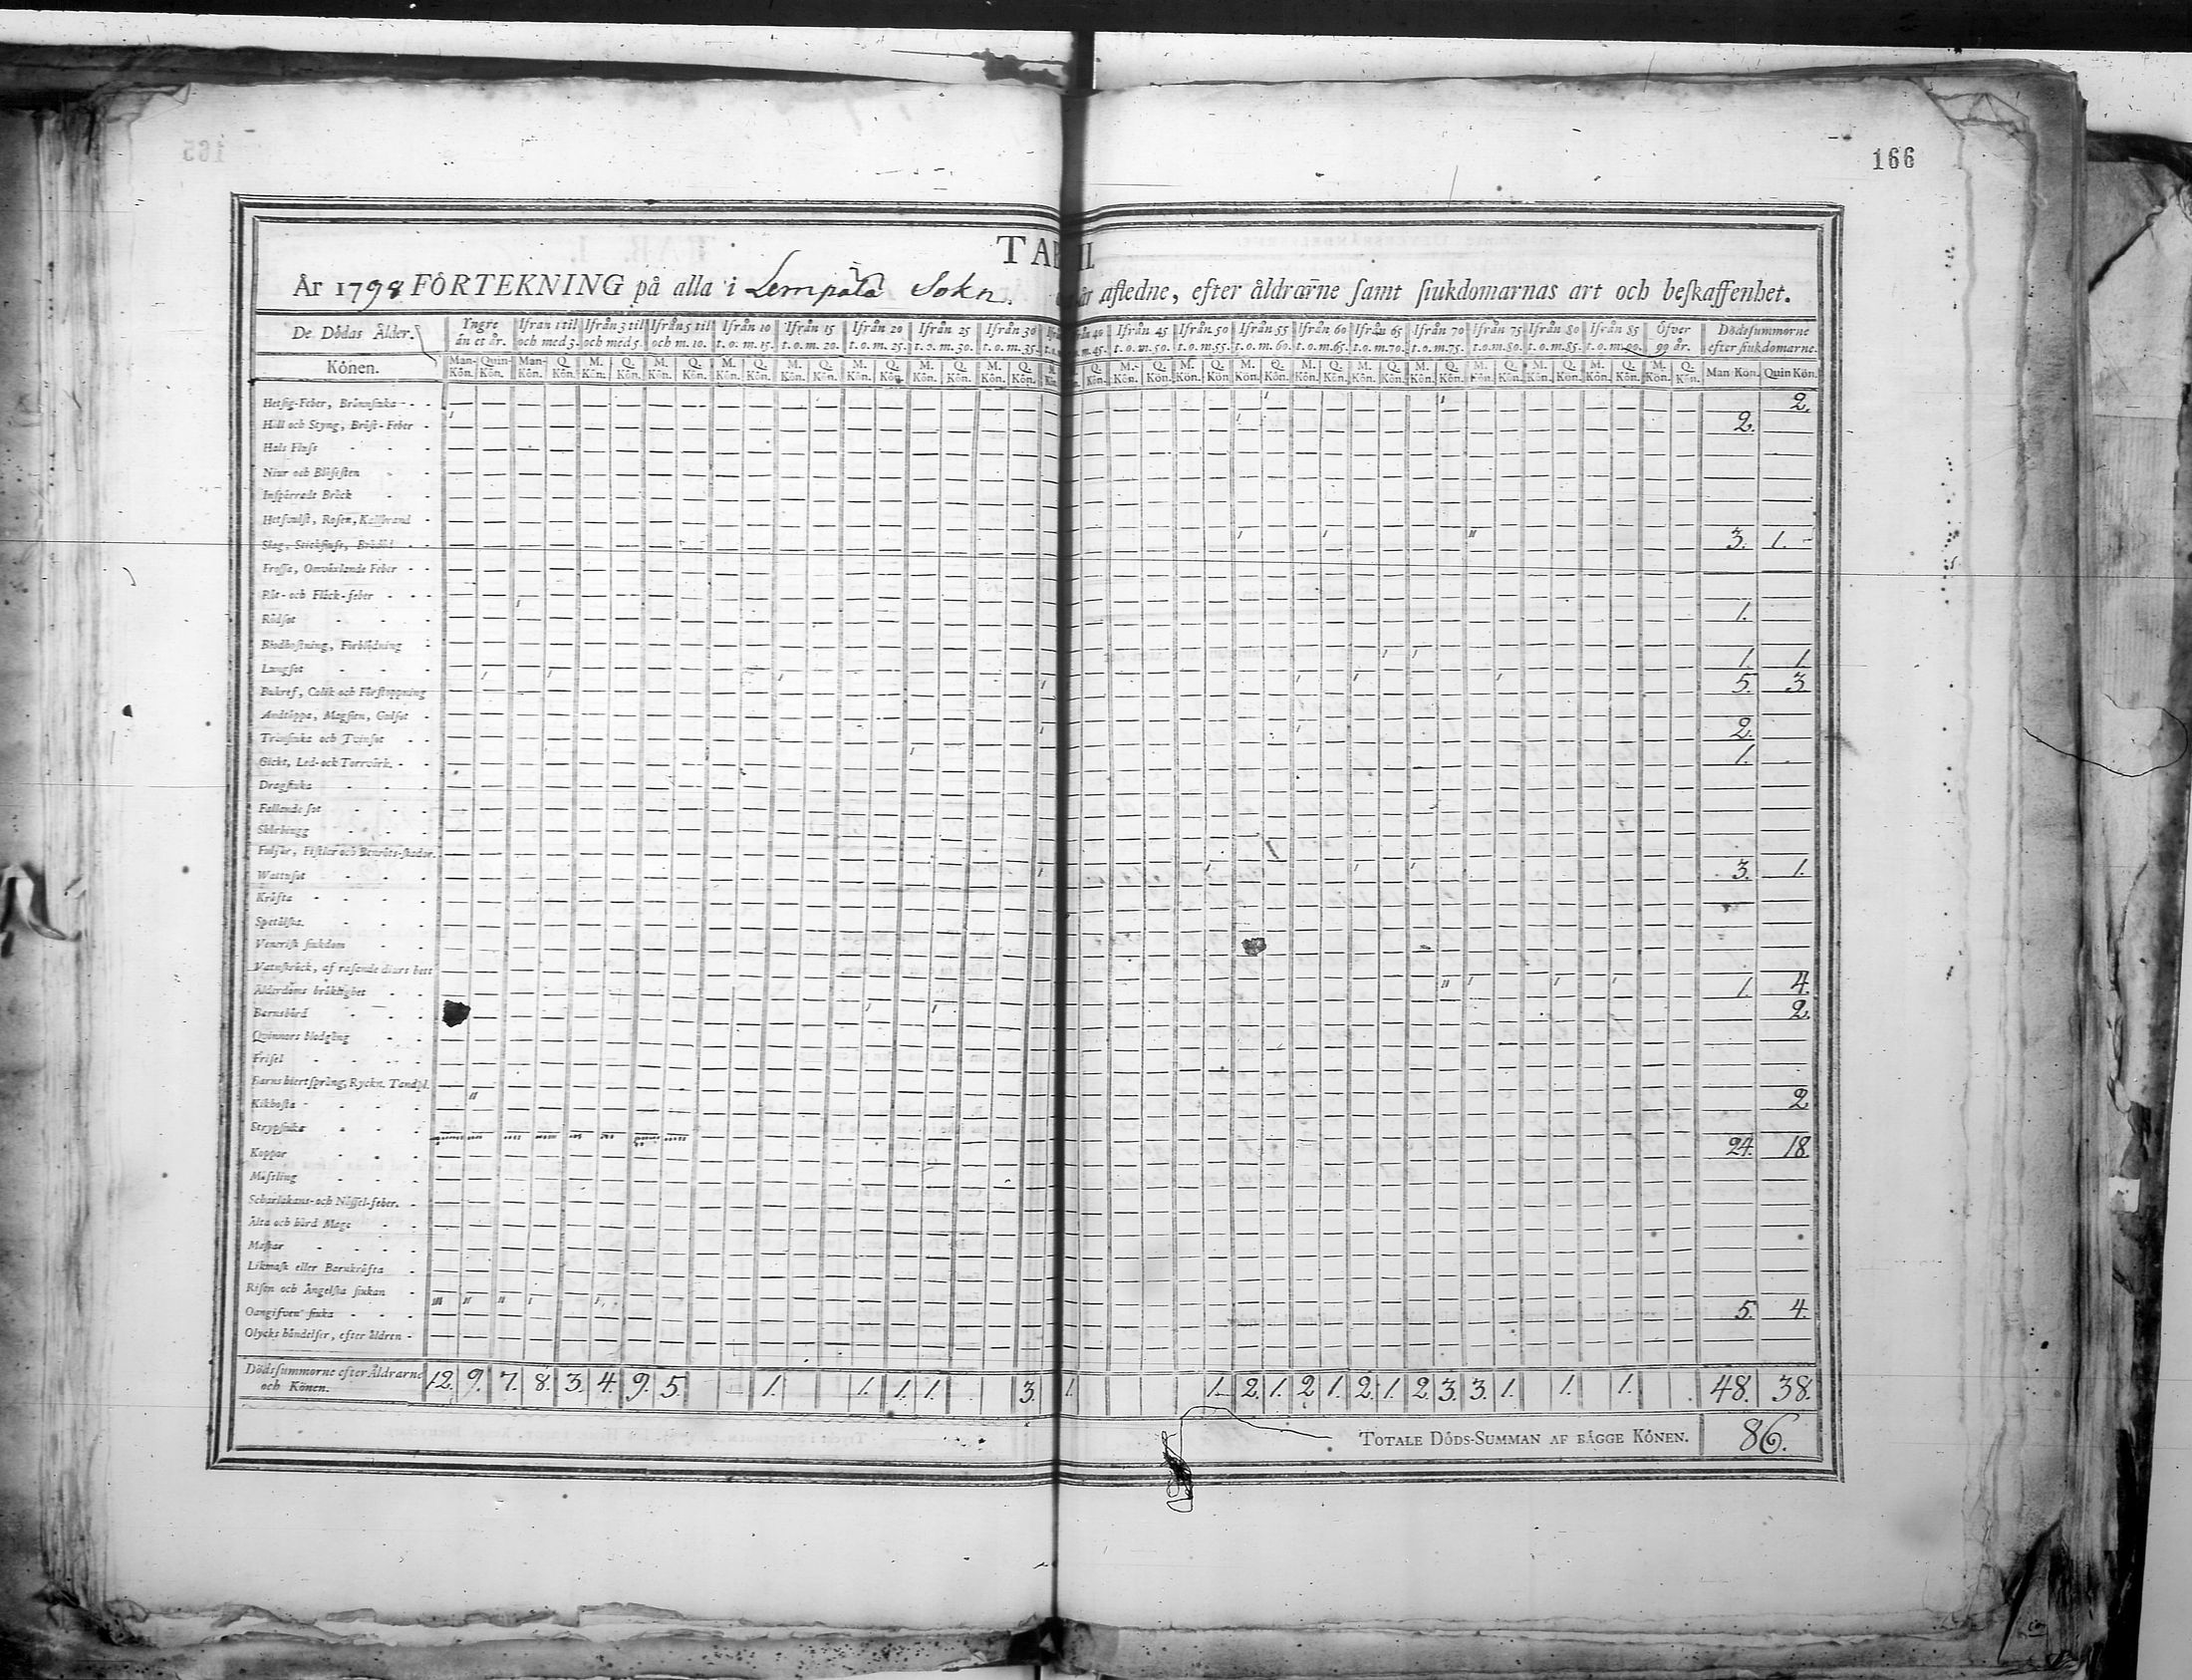 166
TAB II
År 1798 FÖRTEKNING på alla i Lempälä Sokn. år afledne, efter åldrarne samt siukdomarnas art och beskaffenhet.
De Dödas Ålder. Yngre än et år. Ifrån 1 til och med 3. Ifrån 3 til och med 5. Ifrån 5 til och m. 10. Ifrån 10 t. o. m. 15. Ifrån 15 t. o. m. 20. Ifrån 20 t. o. m. 25. Ifrån 25 t. o. m. 30. Ifrån 30 t. o. m. 35. Ifrån 40 t. o. m. 45. Ifrån 45 t. o. m. 50. Ifrån 50 t. o. m. 55. Ifrån 55 t. o. m. 60. Ifrån 60 t. o. m. 65. Ifrån 65 t. o. m. 70. Ifrån 70 t. o. m. 75. Ifrån 75 t. o. m. 80. Ifrån 80 t. o. m. 85. Ifrån 85 t. o. m. 90. Öfver 90 år. Dödssummorne efter siukdomarne.
Könen. Man-Kön. Quin-Kön. Man-Kön. Q. Kön. M. Kön. Q. Kön. M. Kön. Q. Kön. M. Kön. Q. Kön. M. Kön. Q. Kön. M. Kön. Q. Kön. M. Kön. Q. Kön. M. Kön. Q. Kön. Man Kön. Quin Kön.
Hetsig-Feber, Brännsiuka 2.
Håll och Styng, Bröst-Feber 2.
Hals Fluss
Niur och Blåsesten
Inspärradt Bråck
Hetsvulst, Rosen, Kallbrand
Slag, Stickfluss, Brådöd 3. 1.
Frossa, Omväxlande Feber
Röt- och Fläck-feber
Rödsot 1.
Blodhostning, Förblödning
Lungsot 1. 1
Bukref, Colik och Förstoppning 5. 3
Andtäppa, Magsten, Gulsot
Tränsiuka och Tvinsot 2.
Gickt, Led- och Torrvärk. 1.
Dragsiuka
Fallande sot
Skörbiugg
Fulsår, Fistlar och Benröts-skador.
Wattusot 3. 1.
Kräfta
Spetälska.
Venerisk siukdom
Vatuskräck, af rasande diurs bett
Ålderdoms bräklighet 1. 4.
Barnsbörd 2.
Quinnors blodgång
Frisel
Barns hiertsprång, Ryckn. Tandsl.
Kikhosta 2
Strypsiuka
Koppar 24. 18.
Mässling
Scharlakans- och Nässel-feber.
Älta och hård Mage
Maskar
Likmask eller Barnkräfta
Risen och Ängelska siukan
Oangifven siuka 5. 4.
Olycks händelser, efter åldren
Dödssummorne efter Åldrarne och Könen. 12. 9. 7. 8. 3. 4. 9. 5. 1. 1. 1. 1. 3. 1. 1. 2. 1. 2. 1. 2. 1. 2. 3. 3. 1. 1. 1. 48. 38.
TOTALE DÖDS-SUMMAN AF BÄGGE KÖNEN. 86.